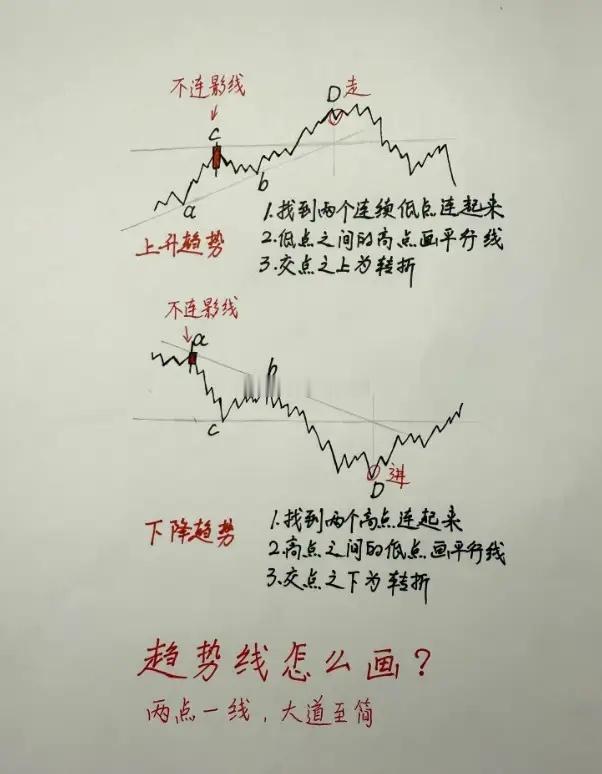 不连影线
D 走
c
a
b
上升趋势
1.找到两个连续低点连起来
2.低点之间的高点画平行线
3.交点之上为转折
不连影线
a
b
c
进
D
下降趋势
1.找到两个高点连起来
2.高点之间的低点画平行线
3.交点之下为转折
趋势线怎么画?
两点一线,大道至简